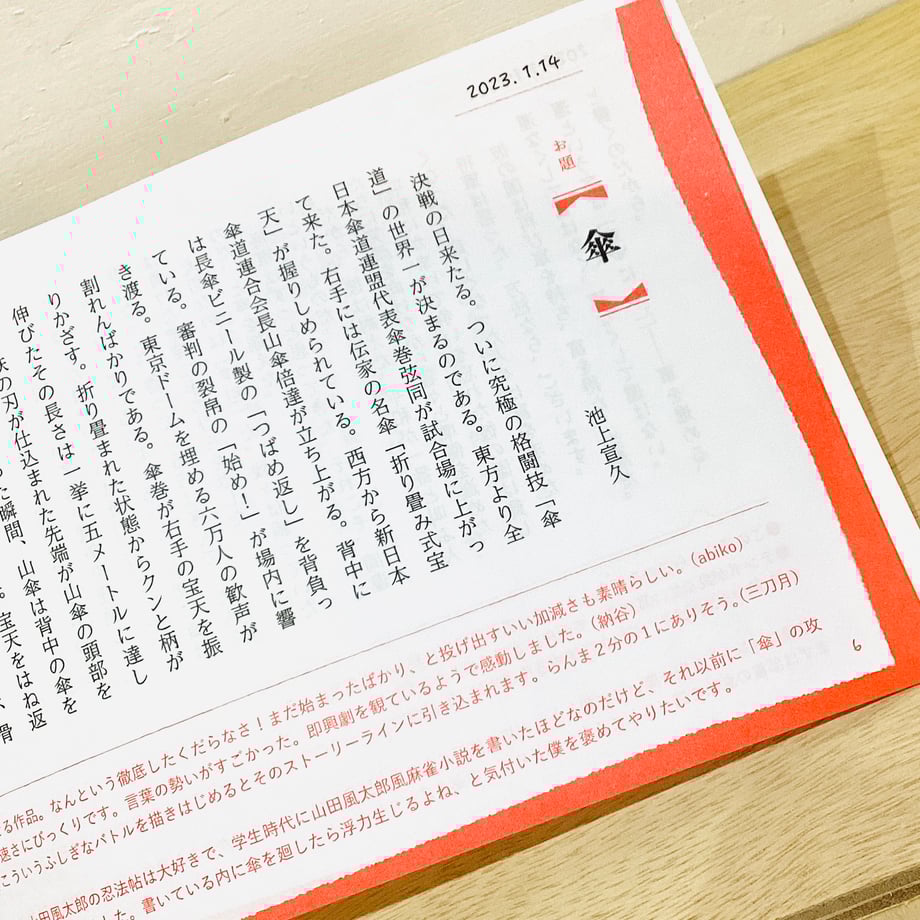 2023.1.14
お題
傘
池上宣久
決戦の日来たる。ついに究極の格闘技「傘
道」の世界一が決まるのである。東方より全
日本傘道連盟代表傘巻弦同が試合場に上がっ
て来た。右手には伝家の名傘「折り畳み式宝
天」が握りしめられている。西方から新日本
傘道連合会長山傘倍達が立ち上がる。背中に
は長傘ビニール製の「つばめ返し」を背負っ
ている。審判の裂帛の「始め！」が場内に響
き渡る。東京ドームを埋める六万人の歓声が
割れんばかりである。傘巻が右手の宝天を振
りかざす。折り畳まれた状態からクンと柄が
伸びたその長さは一挙に五メートルに達し
の刃が仕込まれた先端が山傘の頭部を
た瞬間、山傘は背中の傘を
。宝天をはね返
る作品。なんという徹底したくだらなさ！まだ始まったばかり、と投げ出すいい加減さも素晴らしい。（abiko）
速さにびっくりです。言葉の勢いがすごかった。即興劇を観ているようで感動しました。（納谷）
こういうふしぎなバトルを描きはじめるとそのストーリーラインに引き込まれます。らんま２分の１にありそう。（三刀月）
山田風太郎の忍法帖は大好きで、学生時代に山田風太郎風麻雀小説を書いたほどなのだけど、それ以前に「傘」の攻
した。書いている内に傘を廻したら浮力生じるよね、と気付いた僕を褒めてやりたいです。
6